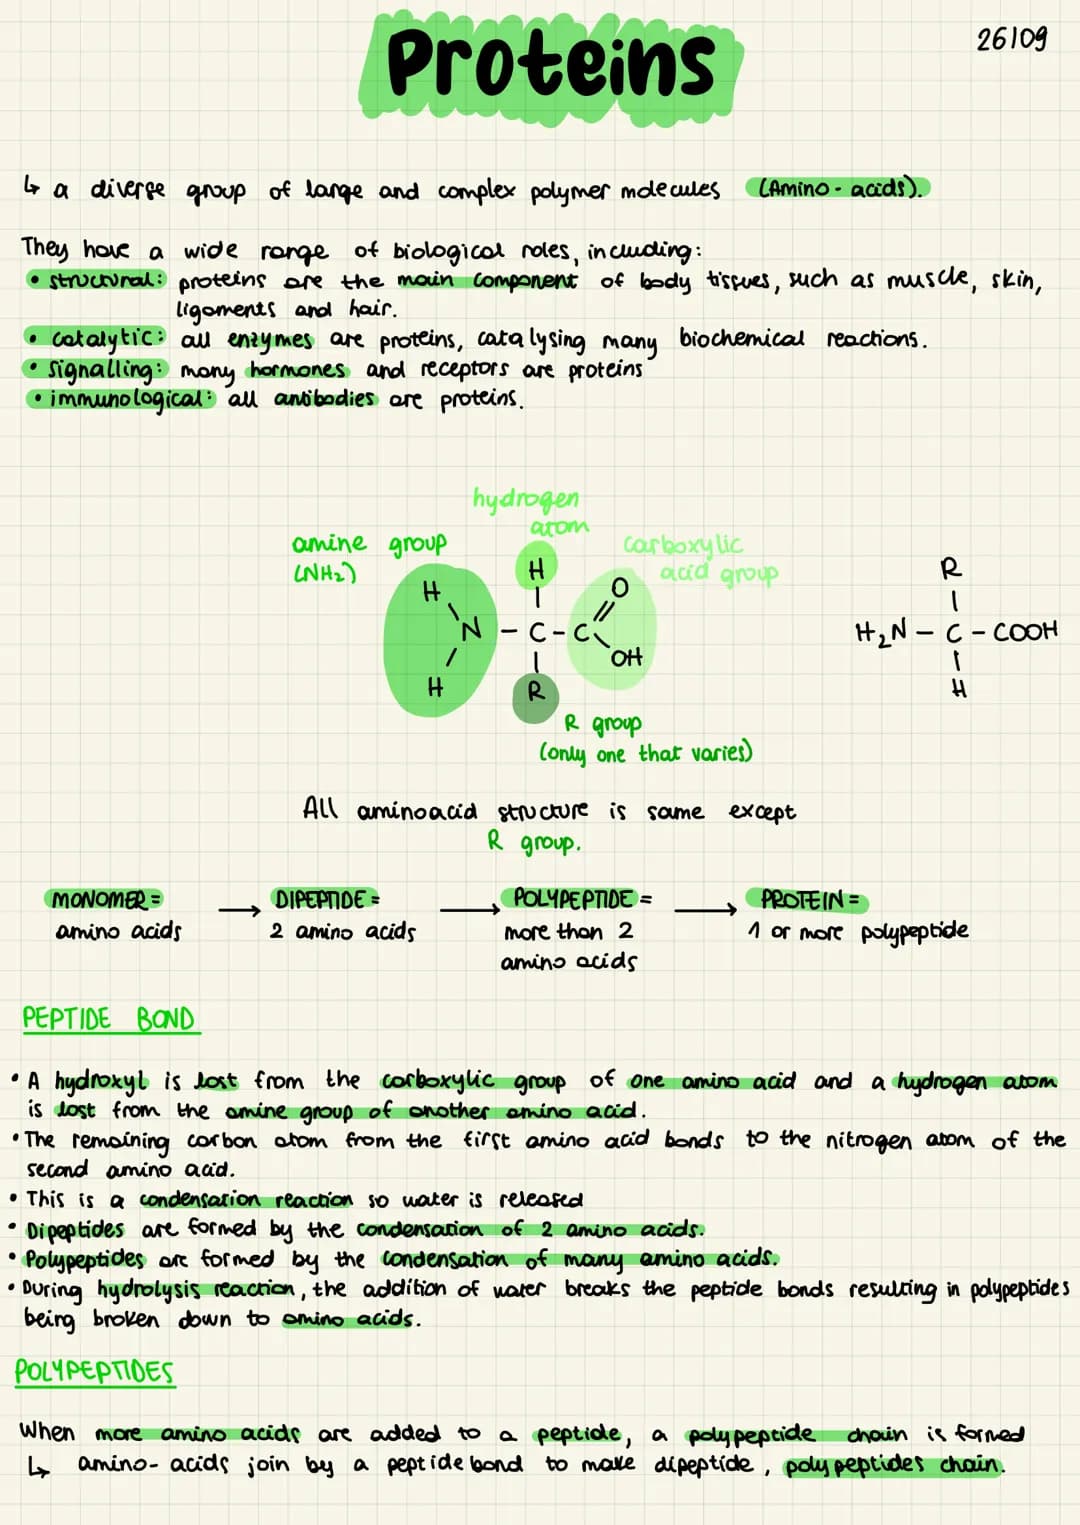 Proteins
26/09
↳ a diverse group of large and complex polymer molecules (Amino-acids).
They have a wide range of biological roles, including:
• structural: proteins are the main component of body tissues, such as muscle, skin,
ligaments and hair.
• catalytic: all enzymes are proteins, catalysing many biochemical reactions.
• signalling: many hormones and receptors are proteins
• immunological: all antibodies are proteins.
hydrogen
atom
amine group
(NH₂)
carboxylic
acid group
H
H
O
N - C - C
OH
H
R
R
H₂N - C - COOH
H
R group
(only one that varies)
All aminoacid structure is same except
R group.
MONOMER = → DIPEPTIDE = → POLYPEPTIDE = → PROTEIN =
amino acids 2 amino acids more than 2 1 or more polypeptide
amino acids
PEPTIDE BOND
• A hydroxyl is lost from the carboxylic group of one amino acid and a hydrogen atom
is lost from the amine group of another amino acid.
• The remaining carbon atom from the first amino acid bonds to the nitrogen atom of the
second amino acid.
• This is a condensation reaction so water is released
• Dipeptides are formed by the condensation of 2 amino acids.
• Polypeptides are formed by the condensation of many amino acids.
• During hydrolysis reaction, the addition of water breaks the peptide bonds resulting in polypeptides
being broken down to amino acids.
POLYPEPTIDES
When more amino acids are added to a peptide, a polypeptide chain is formed
↳ amino-acids join by a peptide bond to make dipeptide, polypeptides chain.